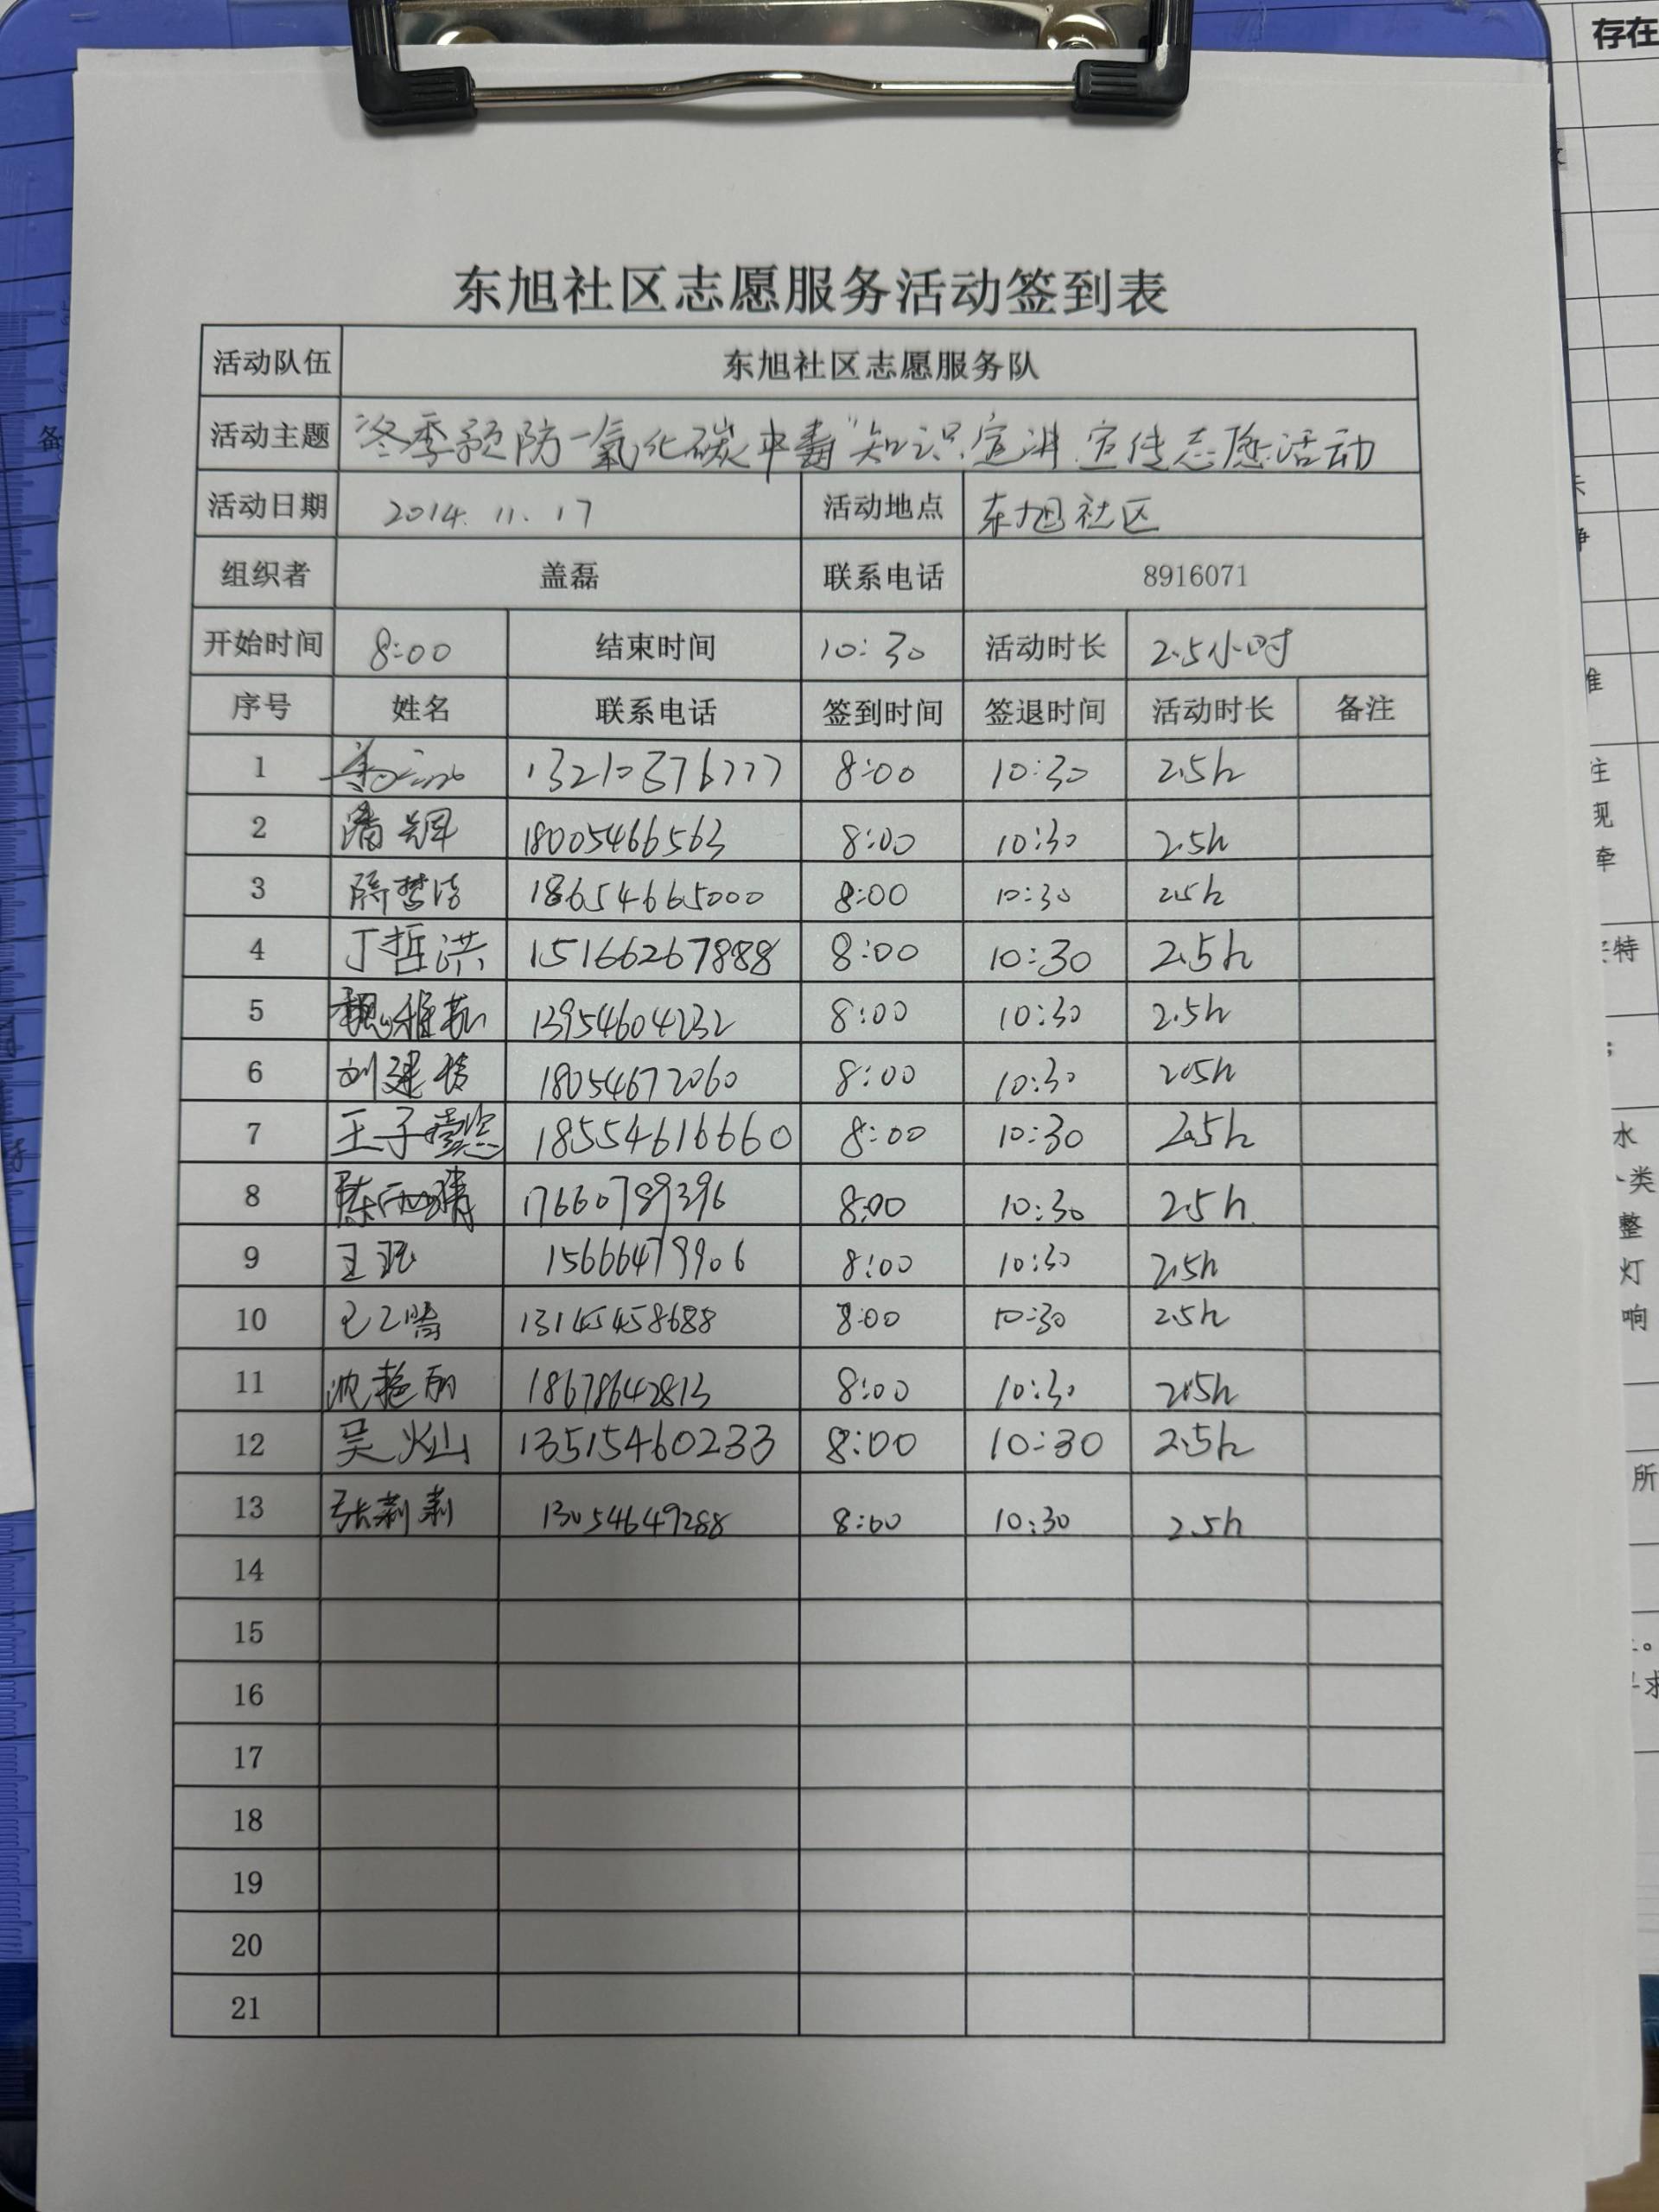 东旭社区志愿服务活动签到表
活动队伍 东旭社区志愿服务队
活动主题 "冬季预防一氧化碳中毒"知识宣讲宣传志愿活动
活动日期 2014.11.17 活动地点 东旭社区
组织者 盖磊 联系电话 8916071
开始时间 8:00 结束时间 10:30 活动时长 2.5小时
序号 姓名 联系电话 签到时间 签退时间 活动时长 备注
1 13210376777 8:00 10:30 2.5h
2 潘辉 18005466563 8:00 10:30 2.5h
3 隋梦洁 18654665000 8:00 10:30 2.5h
4 丁哲洪 15166267888 8:00 10:30 2.5h
5 魏雅茹 13954604232 8:00 10:30 2.5h
6 刘建 18054672060 8:00 10:30 2.5h
7 王子 18554616660 8:00 10:30 2.5h
8 陈雨晴 17660789396 8:00 10:30 2.5h
9 王 15666479906 8:00 10:30 2.5h
10 13145458688 8:00 10:30 2.5h
11 沈艳丽 18678642813 8:00 10:30 2.5h
12 吴灿 13515460233 8:00 10:30 2.5h
13 张莉莉 13054649288 8:00 10:30 2.5h
14
15
16
17
18
19
20
21
存在
备
准
现
牵
特
水
类
整
灯
响
所